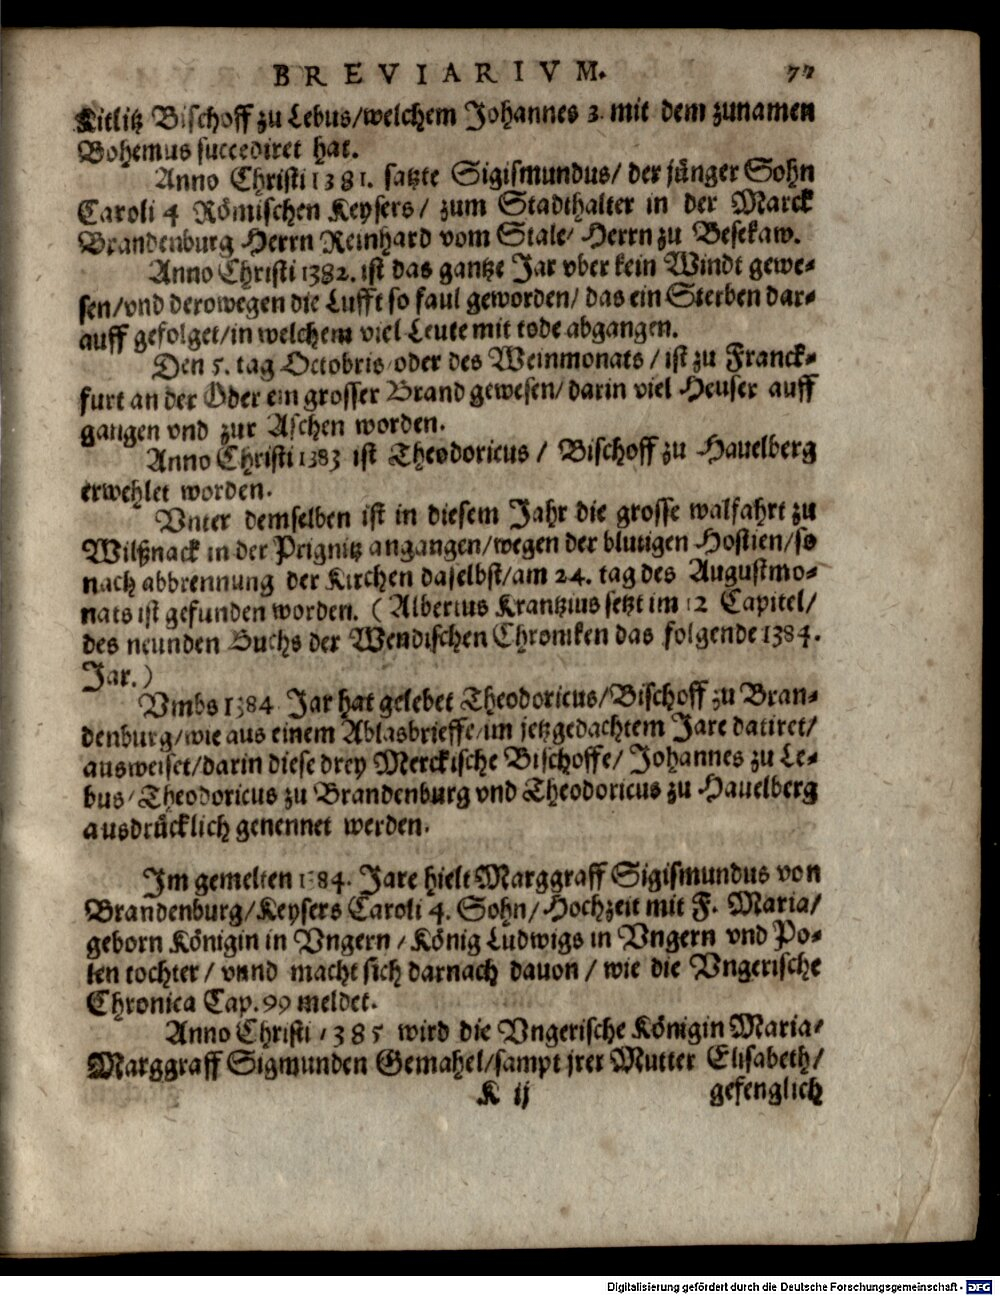 BREVIARIVM. 77
Kitlitz Bischoff zu Lebus/welchem Johannes 3. mit dem zunamen
Bohemus succediret hat.
Anno Christi 1381. satzte Sigismundus/ der jünger Sohn
Caroli 4 Römischen Keysers/ zum Stadthalter in der Marck
Brandenburg Herrn Reinhard vom Stale/ Herrn zu Besekaw.
Anno Christi 1382. ist das gantze Jar vber kein Windt gewe-
sen/vnd derowegen die Lufft so faul geworden/ das ein Sterben dar-
auff gefolget/in welchem viel Leute mit tode abgangen.
Den 5. tag Octobris oder des Weinmonats/ ist zu Franck-
furt an der Oder ein grosser Brand gewesen/ darin viel Heuser auff
gangen vnd zur Aschen worden.
Anno Christi 1383 ist Theodoricus/ Bischoff zu Hauelberg
erwehlet worden.
Vnter demselben ist in diesem Jahr die grosse walfahrt zu
Wilßnack in der Prignitz angangen/wegen der blutigen Hostien/so
nach abbrennung der Kirchen daselbst/am 24. tag des Augustmo-
nats ist gefunden worden. (Albertus Krantzius setzt im 12 Capitel/
des neunden Buchs der Wendischen Chroniken das folgende 1384.
Jar.)
Vmbs 1384 Jar hat gelebet Theodoricus/Bischoff zu Bran-
denburg/wie aus einem Ablasbrieffe/im jetzgedachtem Jare datiret/
ausweiset/darin diese drey Merckische Bischoffe/ Johannes zu Le-
bus/Theodoricus zu Brandenburg vnd Theodoricus zu Hauelberg
ausdrücklich genennet werden.
Im gemelten 1384. Jare hielt Marggraff Sigismundus von
Brandenburg/Keysers Caroli 4. Sohn/Hochzeit mit F. Maria/
geborn Königin in Vngern/König Ludwigs in Vngern vnd Po-
len tochter/ vnnd macht sich darnach dauon/ wie die Vngerische
Chronica Cap. 99 meldet.
Anno Christi 1385 wird die Vngerische Königin Maria/
Marggraff Sigmunden Gemahel/sampt jrer Mutter Elisabeth/
K ij gefenglich
Digitalisierung gefördert durch die Deutsche Forschungsgemeinschaft - DFG